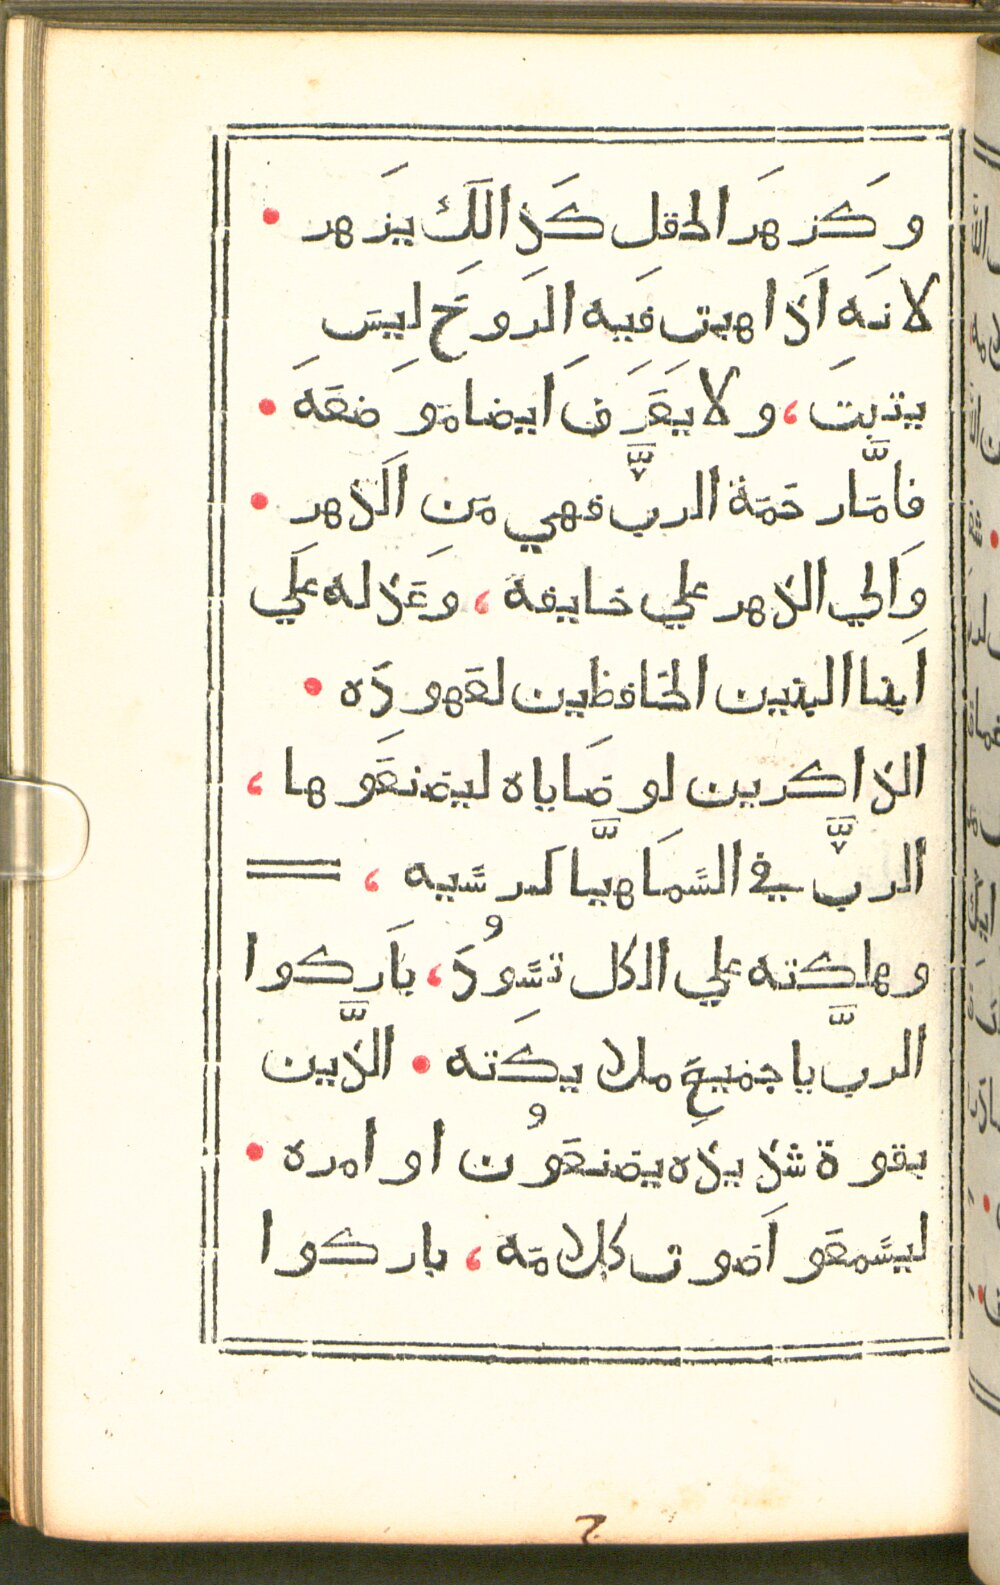 وكزهر الحقل كذالك يزهر •
لانه اذا هبت فيه الروح ليس
يتبت ، ولا يعرف ايضا موضعه •
فاما رحمة الرب فهي من الدهر •
والي الدهر علي خايفه ، وعدله علي
ابنا البنين الحافظين لعهوده •
الذاكرين لوصاياه ليصنعوها ،
الربّ في السما هيا كرسيه ،
وملكته علي الكل تسود ، باركوا
الربّ يا جميع ملايكته • الذّين
بقوة شديده يصنعون اوامره •
ليسمعو اصوت كلامه ، باركوا